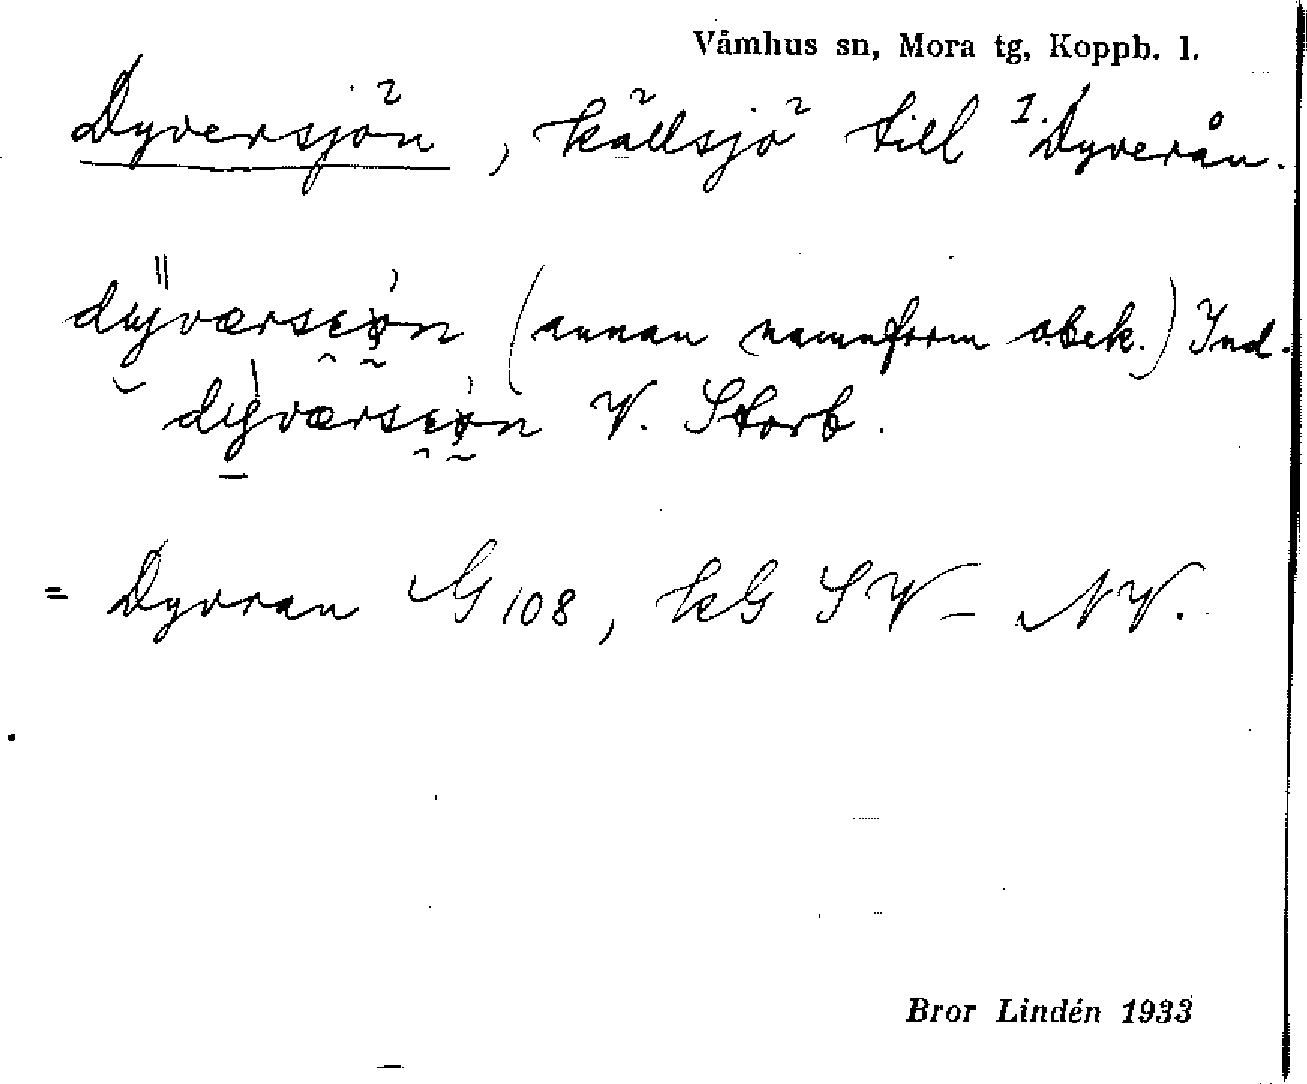 Våmhus sn, Mora tg, Koppb. l.
Dyversjön, källsjö till 1. Dyverån.
dyværsiøn (annan namnform obek.) Ind.
dyværsiøn V. Storb.
= Dyvran G 108, kG SV – NV.
Bror Lindén 1933